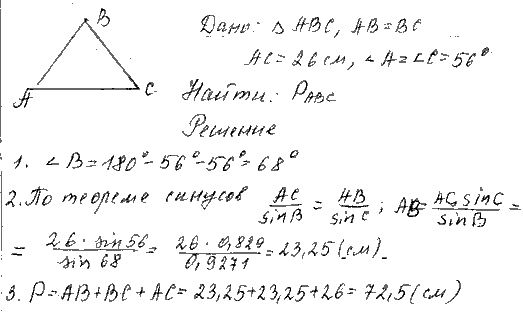 B
Дано: △ ABC, AB=BC
AC=26 см, ∠A=∠C=56°
A
C
Найти: P_ABC
Решение
1. ∠B=180°-56°-56°=68°
2. По теореме синусов AC/sinB = AB/sinC; AB = AC·sinC/sinB =
= 26·sin56/sin68 = 26·0,829/0,9271 = 23,25 (см).
3. P=AB+BC+AC=23,25+23,25+26=72,5 (см)